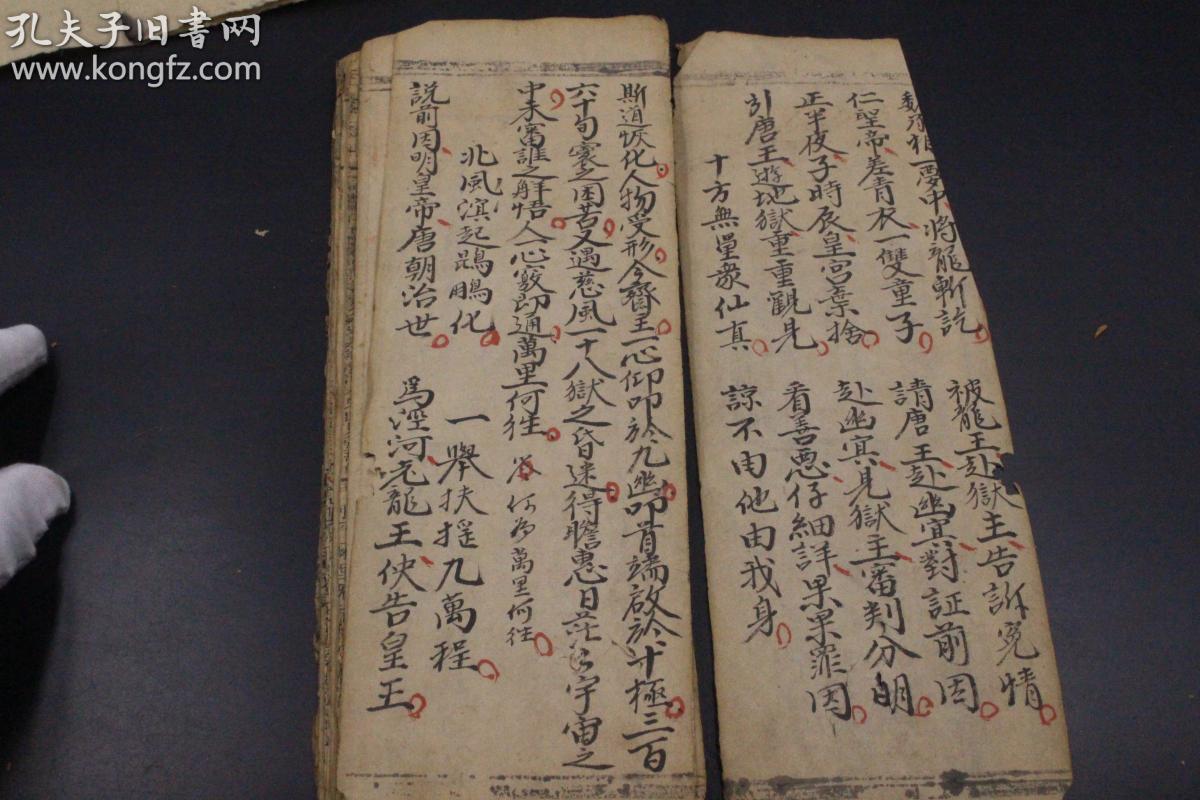 孔夫子旧书网
www.kongfz.com
魏丞相一夢中將龍斬訖 被龍王赴獄主告訴冤情
仁聖帝差青衣一雙童子 請唐王赴幽冥對証前因
正半夜子時辰皇宮棄捨 赴幽冥見獄主審判分明
引唐王遊地獄重重觀見 看善惡仔細詳果罪因
十方無量眾仙真 諒不由他由我身
斯道恢化人物受形今齋主一心仰叩於九幽叩首端啟於十極三百
六十旬寰之困苦又遇慈風一十八獄之昏迷得瞻惠日茫茫宇宙之
中未審誰之觧悟人心竅即通萬里何往 為萬里何往
北風滨起鵾鵬化 一舉扶搖九萬程
説前因明皇帝唐朝治世 為涇河老龍王使告皇王